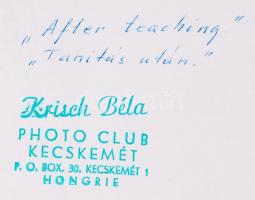 „After teaching."
„Tanitás után."
Krisch Béla
PHOTO CLUB
KECSKEMÉT
P. O. BOX. 30. KECSKEMÉT 1
HONGRIE